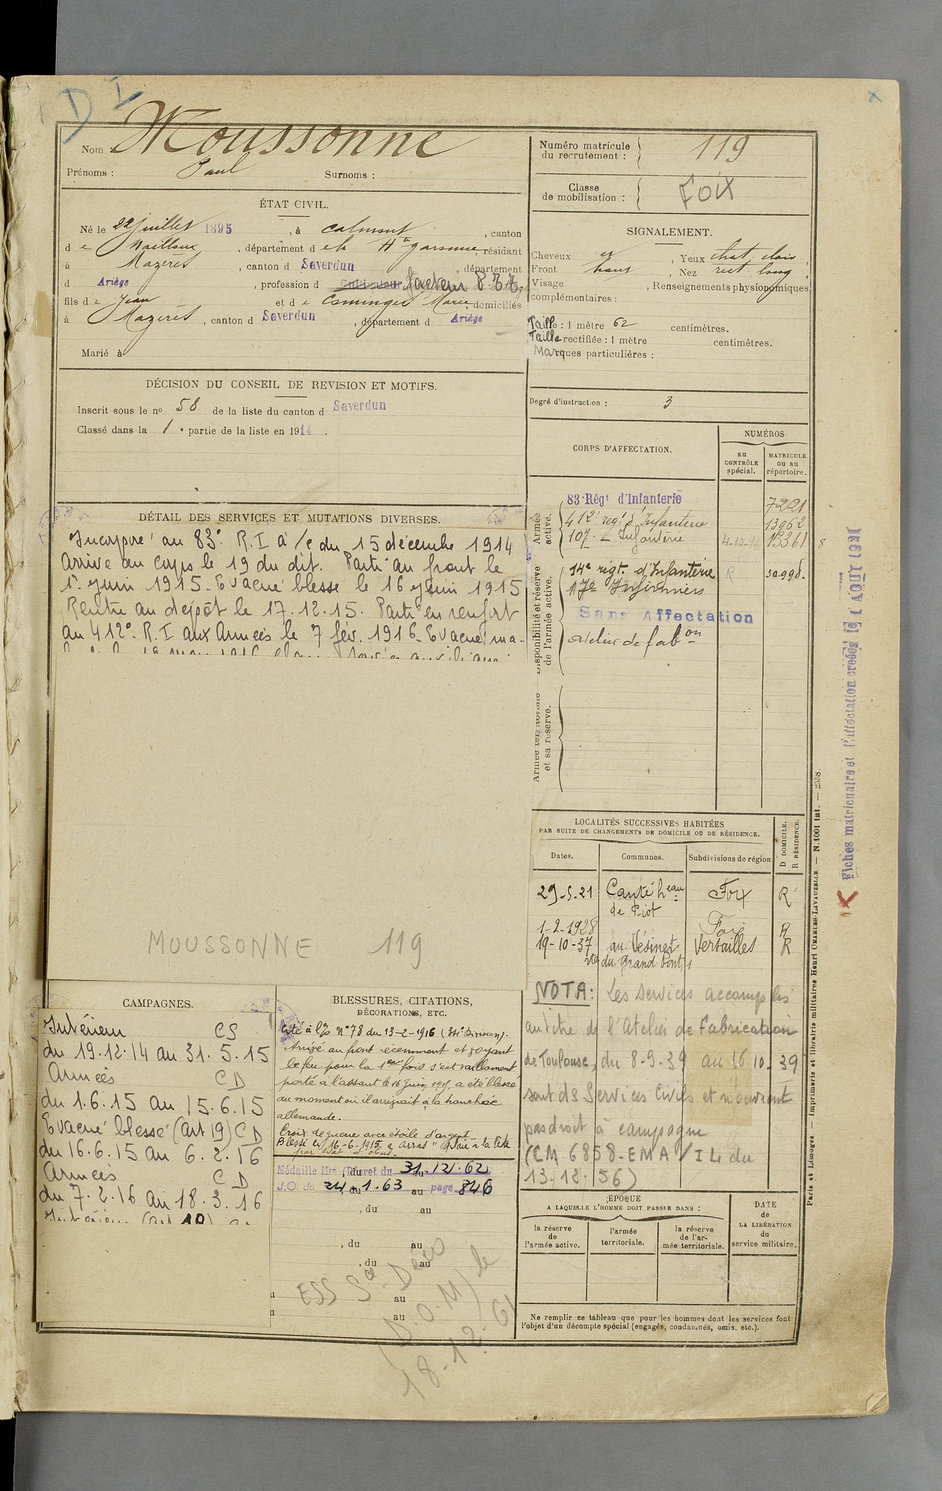 D I
Nom Moussonne
Prénoms : Paul Surnoms :
ÉTAT CIVIL.
Né le 22 juillet 1895, à Calmont, canton
de Nailloux, département de la Hte Garonne, résidant
à Mazères, canton d Saverdun, département
d Ariège, profession d Cultivateur facteur P.T.T.
fils de Jean et de Esminger Marie domiciliés
à Mazères, canton d Saverdun, département d Ariège
Marié à
DÉCISION DU CONSEIL DE REVISION ET MOTIFS.
Inscrit sous le no 58 de la liste du canton d Saverdun
Classé dans la 1e partie de la liste en 1914.
DÉTAIL DES SERVICES ET MUTATIONS DIVERSES.
Incorporé au 83e R.I à /c du 15 décembre 1914
Arrivé au corps le 19 du dit. Parti au front le
1er juin 1915. Evacué blessé le 16 juin 1915
Rentré au dépôt le 17.12.15. Parti en renfort
au 412e R.I aux Armées le 7 fév. 1916. Evacué ma-
MOUSSONNE 119
CAMPAGNES.
Intérieur CS
du 19.12.14 au 31.5.15
Armées CD
du 1.6.15 au 15.6.15
Evacué blessé (art 19) CD
du 16.6.15 au 6.2.16
Armées CD
du 7.2.16 au 18.3.16
BLESSURES, CITATIONS,
DÉCORATIONS, ETC.
Cité à l'o. n° 78 du 13-2-1916 (34e Division).
Arrivé au front récemment et voyant
le feu pour la 1ère fois s'est vaillamment
porté à l'assaut le 16 juin 1915, a été blessé
au moment où il arrivait à la tranchée
allemande.
Croix de guerre avec étoile d'argent
Blessé le 16-6-1915 à Arras à la tête
Médaille Mre, Décret du 31.12.62
J.O. du 24.1.63 au page 846
, du au
, du au
, du au
au
au
ESS Sce Déco
(J.O.M) le
18-12-61
Numéro matricule
du recrutement : 119
Classe
de mobilisation : Foix
SIGNALEMENT.
Cheveux , Yeux chat. clair
Front haut , Nez rect. long
Visage , Renseignements physionomiques
complémentaires :
Taille : 1 mètre 62 centimètres.
Taille rectifiée : 1 mètre centimètres.
Marques particulières :
Degré d'instruction : 3
CORPS D'AFFECTATION.
NUMÉROS
au
CONTRÔLE
spécial.
MATRICULE
ou au
répertoire.
Armée
active.
83e Régt d'Infanterie 7221
412e regt d'Infanterie 13962
107e Infanterie 4-10-16 13361
Disponibilité et réserve
de l'armée active.
14e regt. d'Infanterie R 30.998.
17e Infirmiers
Sans Affectation
atelier de fabon
Armée territoriale
et sa réserve.
LOCALITÉS SUCCESSIVES HABITÉES
PAR SUITE DE CHANGEMENTS DE DOMICILE OU DE RÉSIDENCE.
Dates. Communes. Subdivisions de région D DOMICILE. R RÉSIDENCE.
29-5-21 Canté heau Foix R
de Piot
1-2-1928 Foix R
19-10-37 au Vésinet Versailles R
rte du Grand Pont, 1
NOTA : Les services accomplis
au titre de l'Atelier de Fabrication
de Toulouse, du 8-9-39 au 16.10.39
sont de Services Civils et n'ouvrent
pas droit à campagne
(CM 6858-EMA/IL du
13-12-56)
ÉPOQUE
A LAQUELLE L'HOMME DOIT PASSER DANS :
la réserve
de
l'armée active.
l'armée
territoriale.
la réserve
de l'ar-
mée territoriale.
DATE
de
LA LIBÉRATION
du
service militaire.
Ne remplir ce tableau que pour les hommes dont les services font
l'objet d'un décompte spécial (engagés, condamnés, omis, etc.).
Paris et Limoges. — Imprimerie et librairie militaires Henri CHARLES-LAVAUZELLE. — N. 1001 Int. — 2558.
Fiches matriculaire et d'affectation créées le 4 AOUT 1921